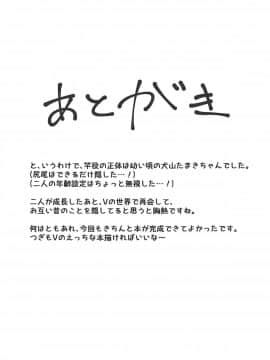 あとがき
と、いうわけで、竿役の正体は幼い頃の犬山たまきちゃんでした。
(尻尾はできるだけ隠した…！)
(二人の年齢設定はちょっと無視した…！)
二人が成長したあと、Vの世界で再会して、
お互い昔のことを隠してると思うと胸熱ですね。
何はともあれ、今回もきちんと本が完成できてよかったです。
つぎもVのえっちな本描ければいいな～